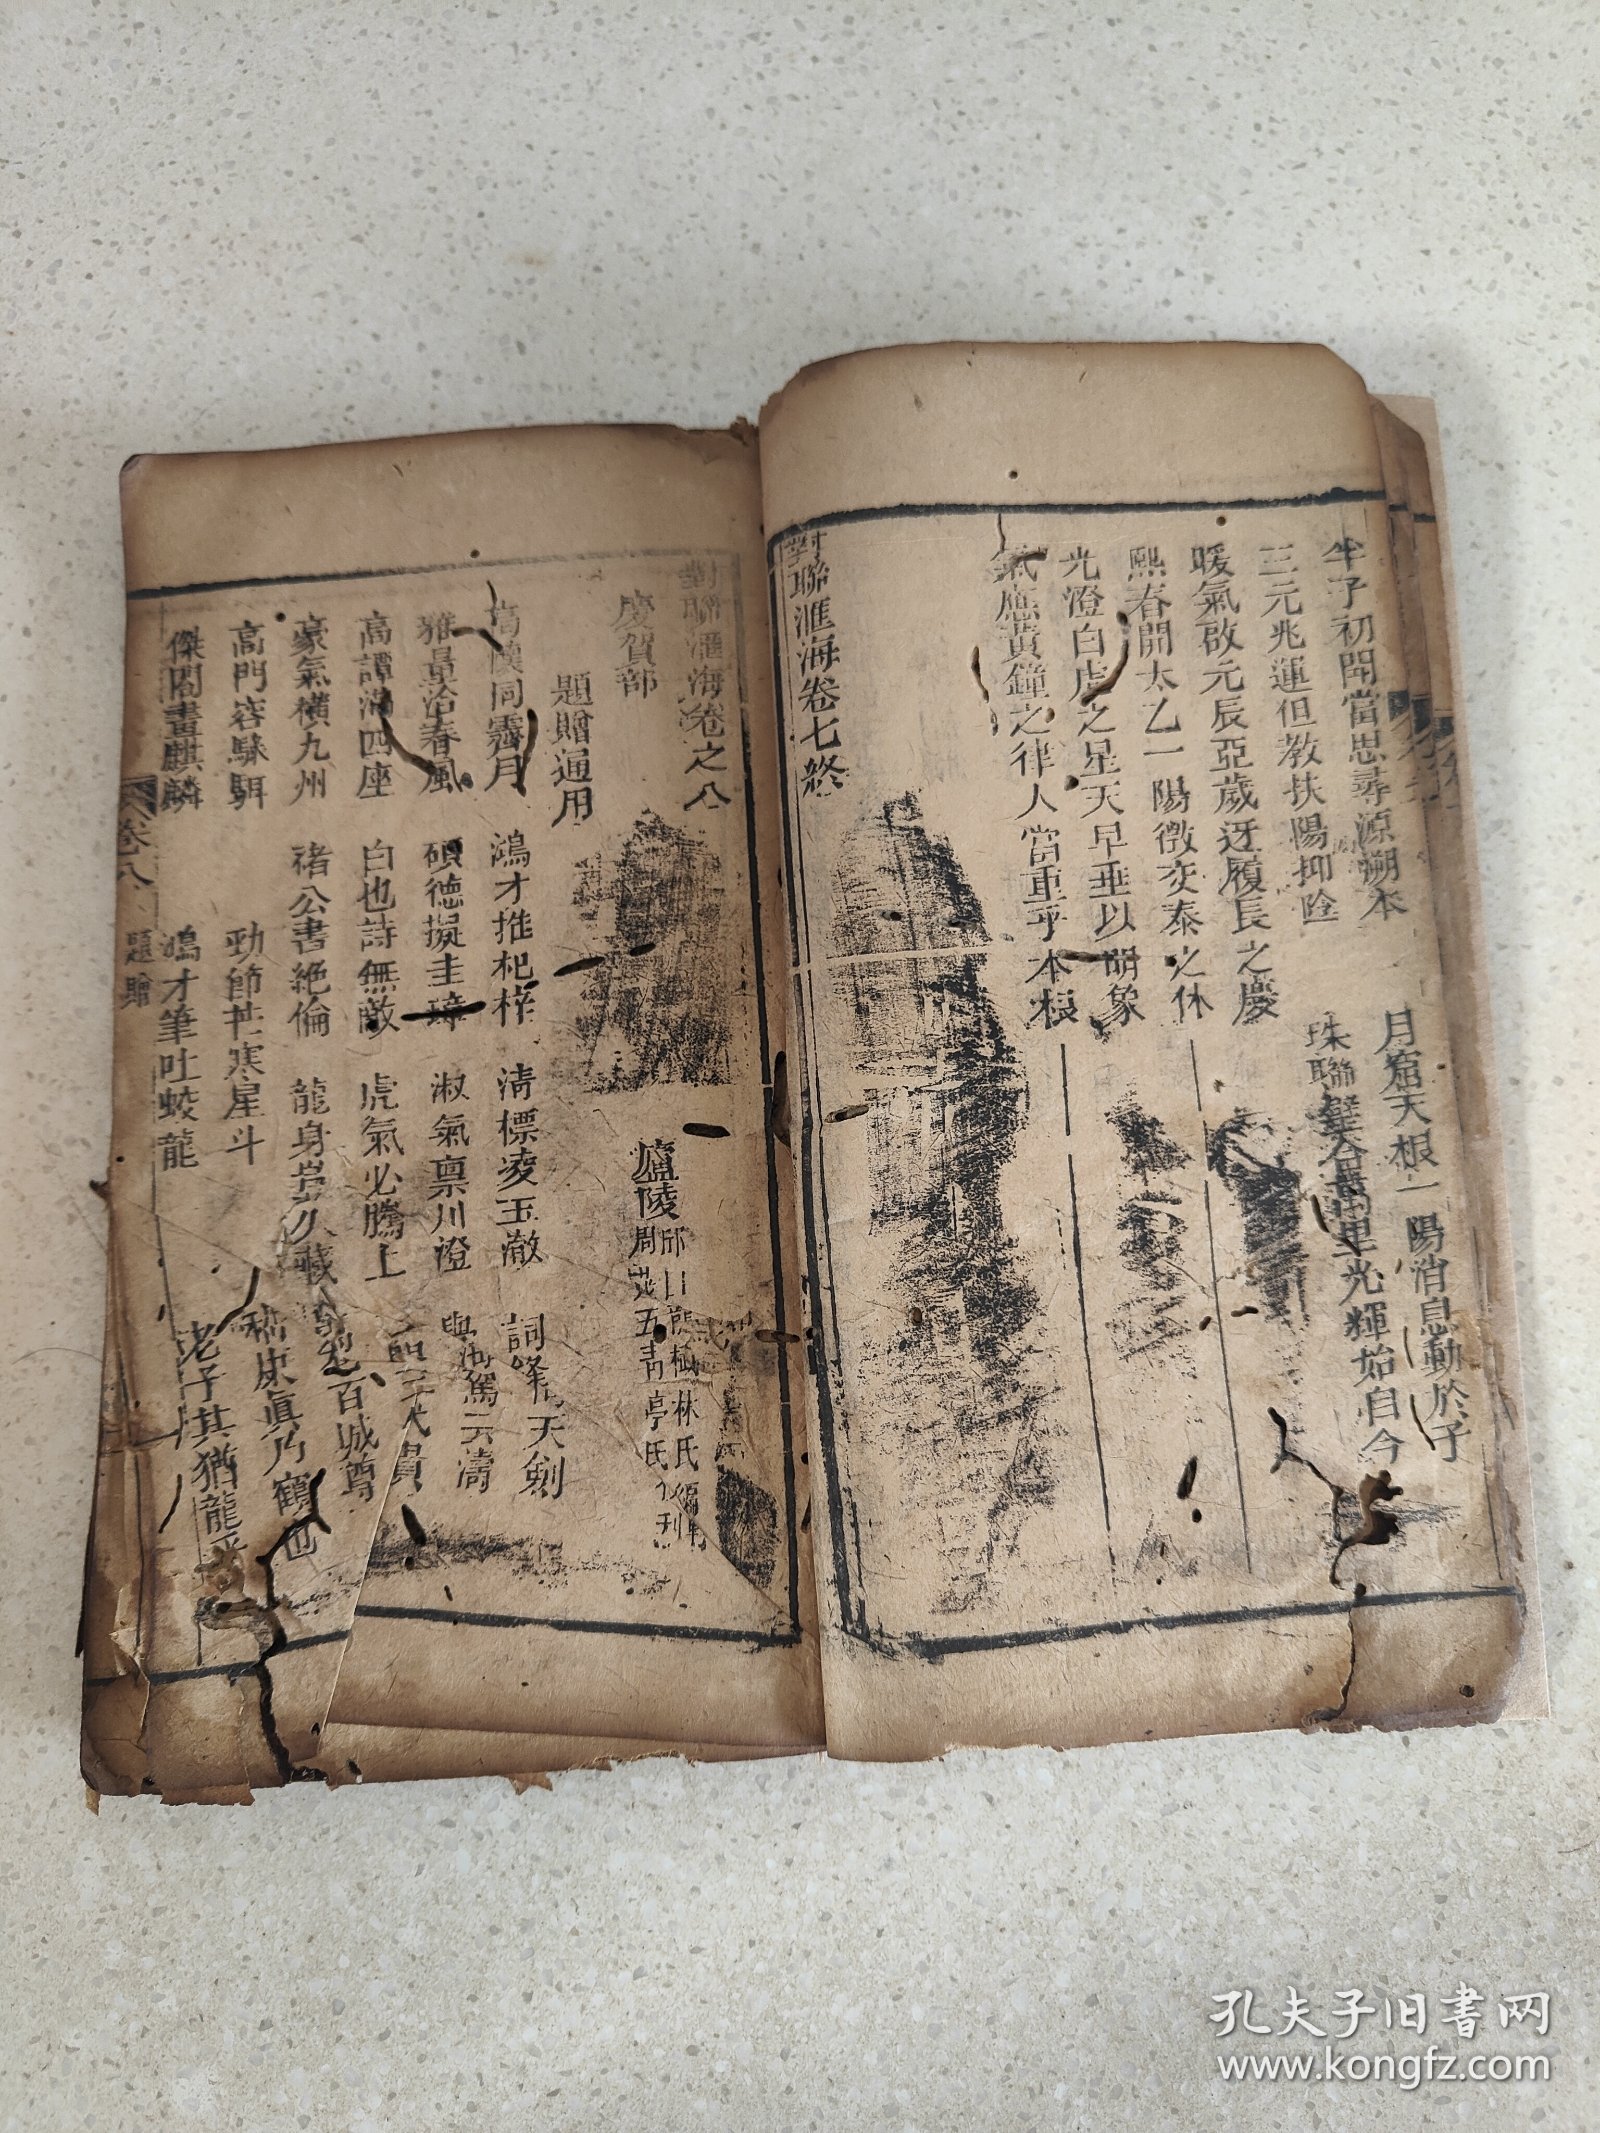 半子初開當思尋源溯本 月窟天根一陽消息動於子
三元兆運但教扶陽抑陰 珠聯璧合萬里光輝始自今
暖氣啟元辰亞歲迓履長之慶
熙春開太乙一陽徵交泰之休
光澄白虎之星天早垂以明象
氣應黃鐘之律人當重乎本根
對聯滙海卷七終
對聯滙海卷之八
廬陵邱日 林氏編輯
周 五青亭氏 刊
慶賀部
題贈通用
高懷同霽月 鴻才推杞梓 清標凌玉澈 詞鋒 天劍
雅量洽春風 碩德擬圭璋 淑氣稟川澄 與海駕云濤
高譚滿四座 白也詩無敵 虎氣必騰上
豪氣橫九州 褚公書絕倫 龍身豈久藏 百城尊
高門容駟 勁節 寒星斗 康真乃鶴也
傑閣畫麒麟 鴻才筆吐蛟龍 老子其猶龍乎
卷八 題贈
孔夫子旧书网
www.kongfz.com